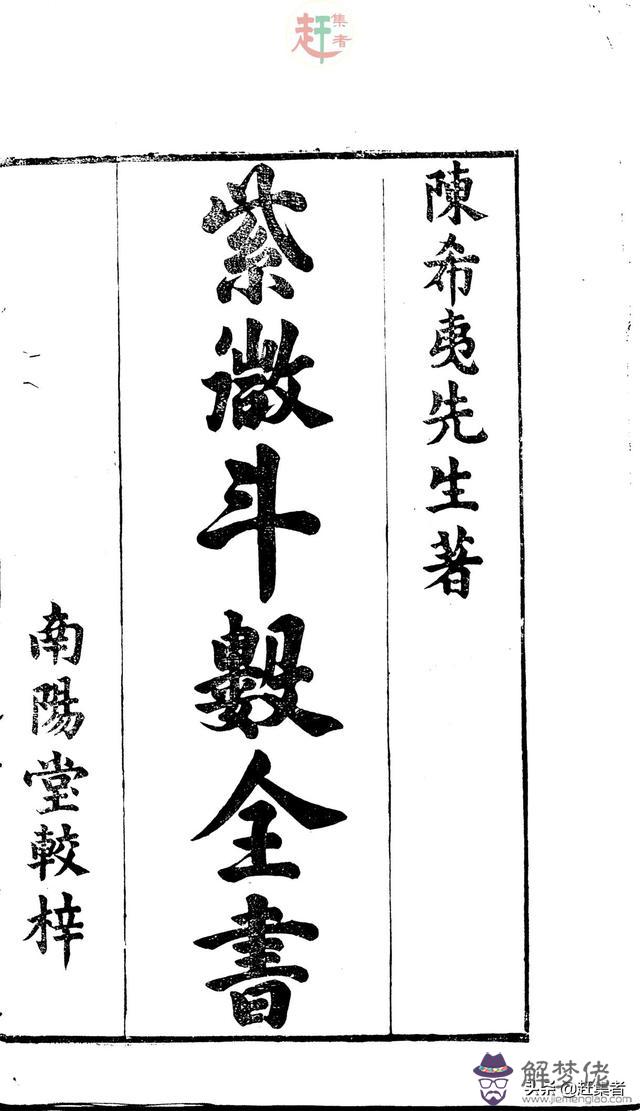 赶集者
陳希夷先生著
紫微斗數全書
南陽堂較梓
解梦佬
头条@赶集者
www.jiemenglao.com